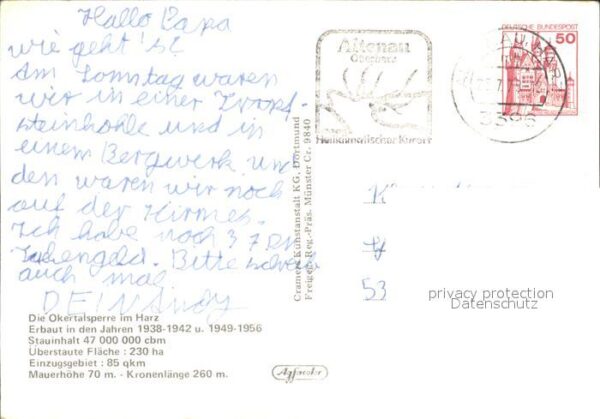 Hallo Papa
wie geht's?
Am Sonntag waren
wir in einer Tropf-
steinhohle und in
einem Bergwerk un
den waren wir noch
auf der Kirmes.
Ich habe noch 37 DM
Tachengeld. Bitte schreib
auch mal
DEIN Andy
Die Okertalsperre im Harz
Erbaut in den Jahren 1938-1942 u. 1949-1956
Stauinhalt 47 000 000 cbm
Überstaute Fläche : 230 ha
Einzugsgebiet : 85 qkm
Mauerhöhe 70 m. - Kronenlänge 260 m.
Cramers Kunstanstalt KG, Dortmund
Freigeg. Reg.-Präs. Münster Cr. 9840
Agfacolor
Altenau
Oberharz
Heilklimatischer Kurort
DEUTSCHE BUNDESPOST
50
3396
K
53
privacy protection
Datenschutz